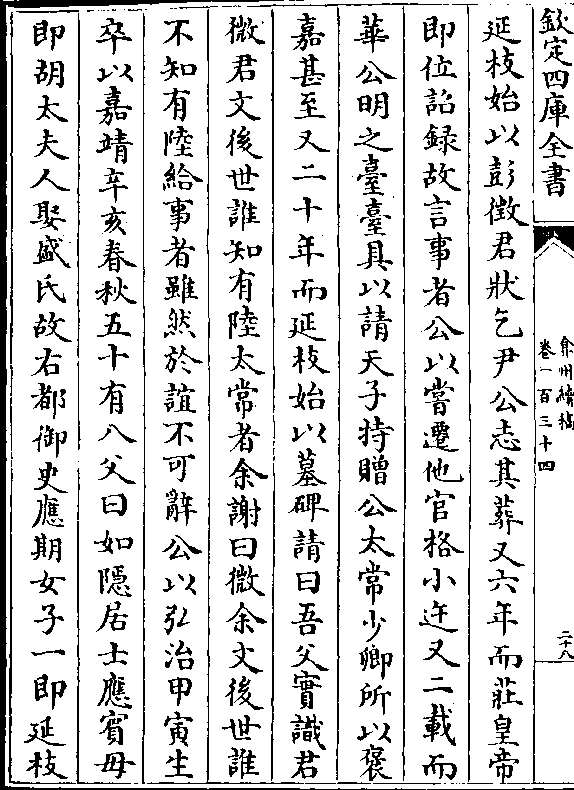 欽定四庫全書
弇州續稿
卷一百三十四
二十八
延枝始以彭徴君狀乞尹公志其葬又六年而莊皇帝
即位詔録故言事者公以嘗遷他官格小迕又二載而
華公明之臺臺具以請天子持贈公太常少卿所以褒
嘉甚至又二十年而延枝始以墓碑請曰吾父實識君
微君文後世誰知有陸太常者余謝曰微余文後世誰
不知有陸給事者雖然於誼不可辭公以弘治甲寅生
卒以嘉靖辛亥春秋五十有八父曰如隠居士應賔母
即胡太夫人娶盛氏故右都御史應期女子一即延枝